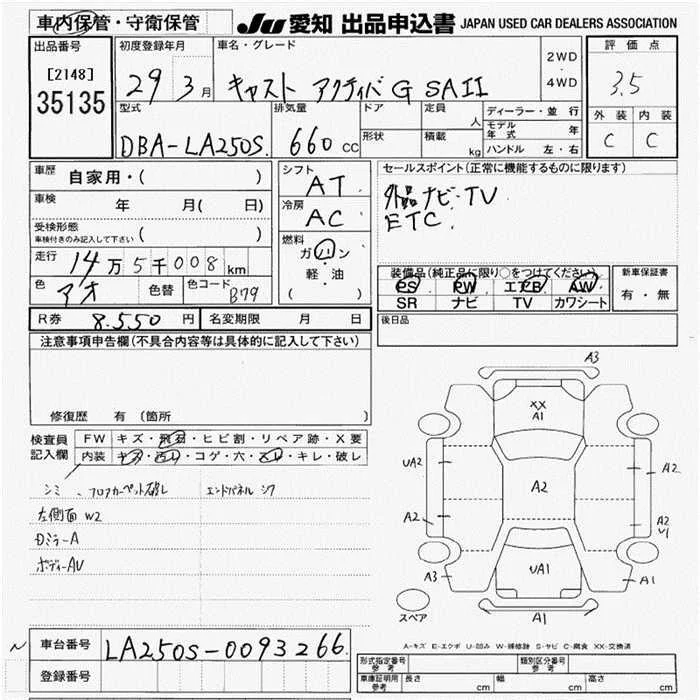 車内保管・守衛保管
JU 愛知 出品申込書 JAPAN USED CAR DEALERS ASSOCIATION
出品番号
[2148]
35135
初度登録年月
29 3 月
車名・グレード
キャスト アクティバ G SAII
2WD
・
4WD
評価点
3.5
外装 内装
C C
型式
DBA-LA250S.
排気量
660 cc
ドア
形状
定員
人
積載
kg
ディーラー・並行
モデル年式 年
ハンドル 左・右
車歴
自家用・( )
車検 年 月( 日)
受検形態
車検付きのみ記入して下さい ( )
走行 14万5千008 km
色 アオ 色替 色コード B79
シフト
AT
冷房
AC
燃料
ガソリン
・
軽・油
( )
セールスポイント(正常に機能するものに限ります)
外品ナビ・TV
ETC.
装備品(純正品に限り○をつけてください)
PS PW エアB AW
SR ナビ TV カワシート
新車保証書
有・無
R券 8.550 円 名変期限 月 日
後日品
注意事項申告欄(不具合内容等は具体的に記入して下さい)
修復歴 有(箇所
検査員記入欄
FW キズ・飛石・ヒビ割・リペア跡・X要
内装 キズ・汚レ・コゲ・穴・スレ・キレ・破レ
シミ 、フロアカーペット破レ エンドパネル シワ
左側面 W2
Dミラー A
ボディーAU
A3
XX
A1
UA2
A2
A2
A2
A2
U1
UA1
A3
A1
A1
スペア
A-キズ E-エクボ U-凹み W-補修跡 S-サビ C-腐食 XX-交換済
車台番号 LA250S-0093266
登録番号
形式指定番号 参考
類別区分番号 参考
車庫証明用 参考 長さ cm 幅 cm 高さ cm